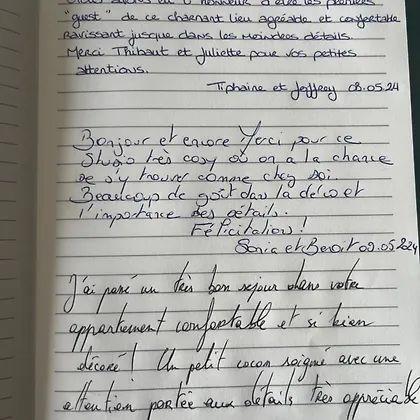 Nous avons eu l'honneur d'être les premiers
"guest" de ce charmant lieu agréable et confortable
Ravissant jusque dans les moindres détails.
Merci Thibaut et Juliette pour vos petites
attentions.
Tiphaine et Jeffrey 08.05.24
Bonjour et encore Merci pour ce
Studio très cosy où on a la chance
de s'y trouver comme chez soi.
Beaucoup de goût dans la déco et
l'importance des détails.
Félicitation!
Sonia et Benoit 09.05.2024
J'ai passé un très bon séjour dans votre
appartement confortable et si bien
décoré! Un petit cocon soigné avec une
attention portée aux détails très appréciable